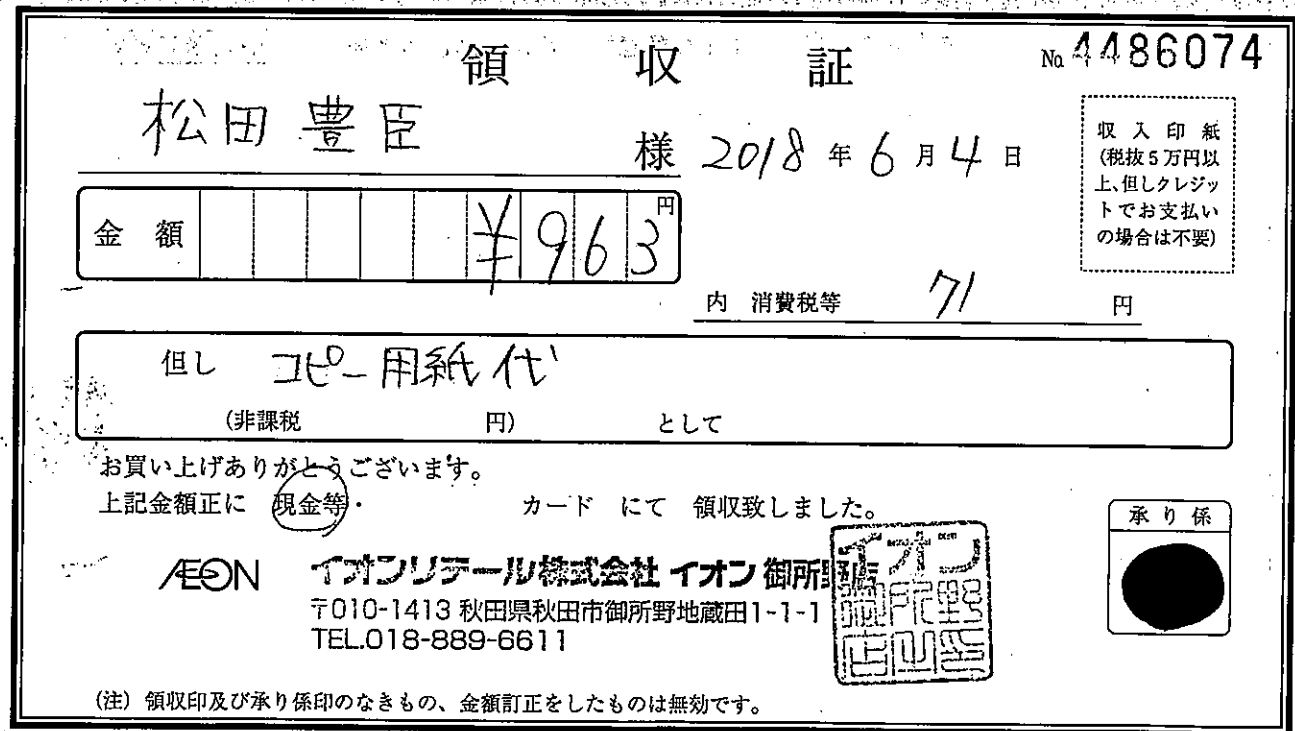 領収証
№ 4486074
松田豊臣 様 2018年6月4日
収入印紙
(税抜5万円以
上、但しクレジッ
トでお支払い
の場合は不要)
金額 ¥963円
内 消費税等 71 円
但し コピー用紙代
(非課税 円) として
お買い上げありがとうございます。
上記金額正に 現金等・ カード にて 領収致しました。
承り係
AEON イオンリテール株式会社 イオン 御所野店
〒010-1413 秋田県秋田市御所野地蔵田1-1-1
TEL.018-889-6611
イオン
御所野
店之印
(注) 領収印及び承り係印のなきもの、金額訂正をしたものは無効です。